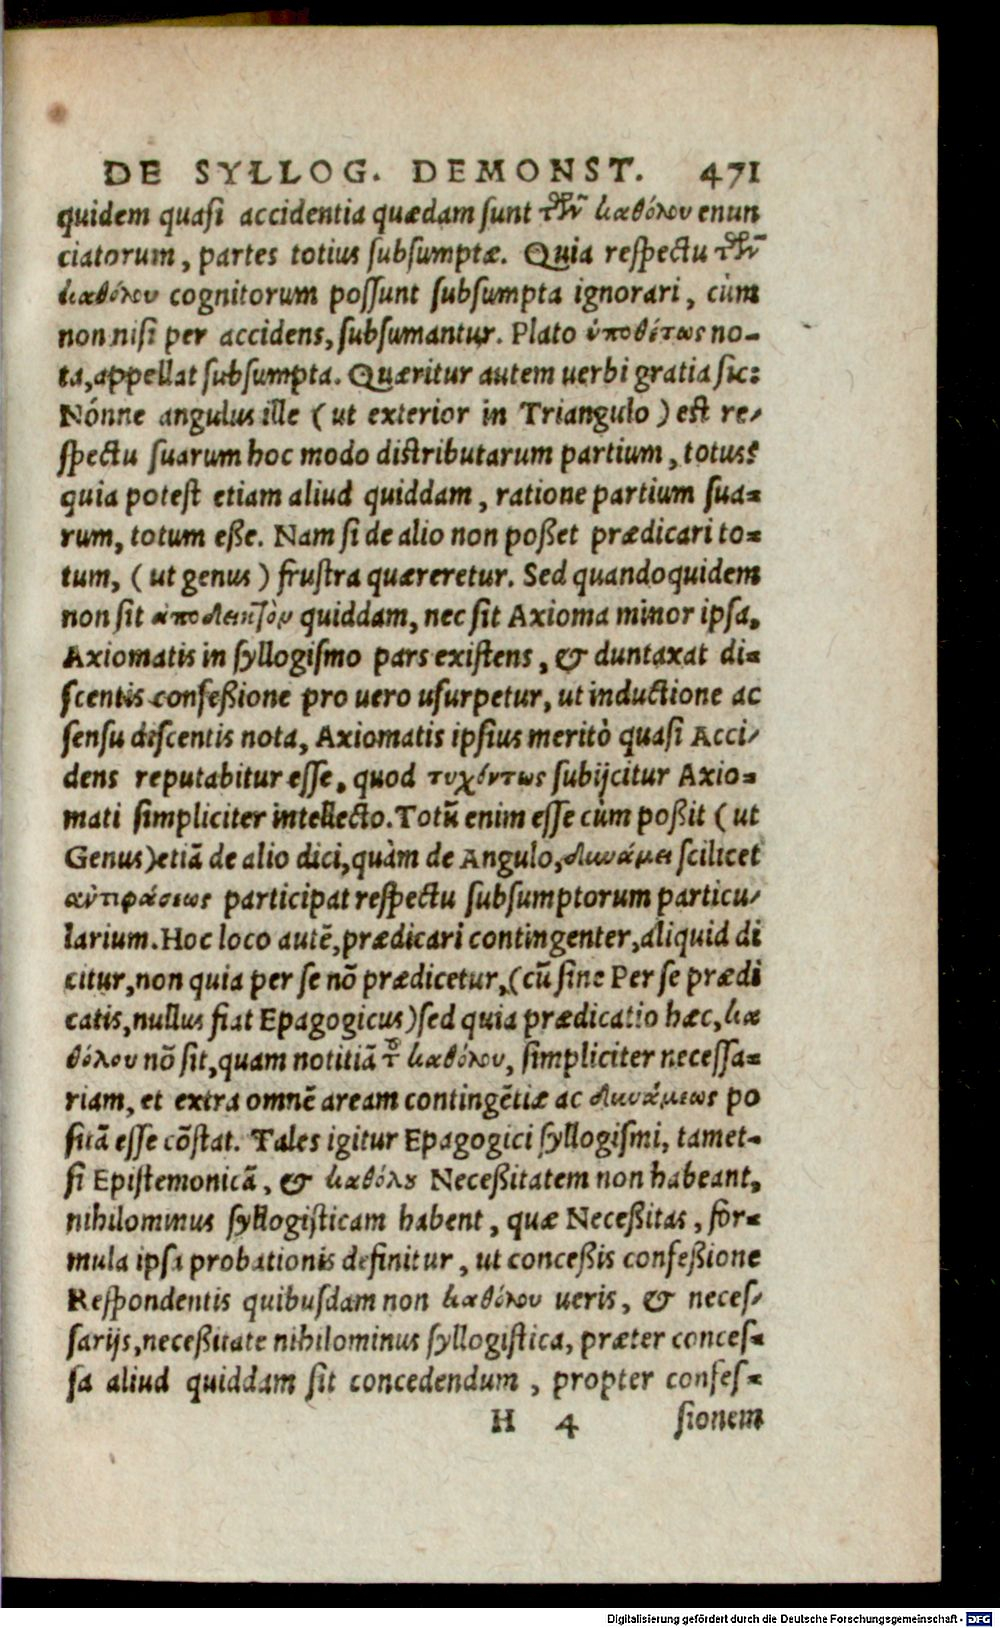 DE SYLLOG. DEMONST. 471
quidem quasi accidentia quædam sunt τῶν καθόλου enun
ciatorum, partes totius subsumptæ. Quia respectu τῶν
καθόλου cognitorum possunt subsumpta ignorari, cùm
non nisi per accidens, subsumantur. Plato ὑποθέτως no-
ta, appellat subsumpta. Quæritur autem uerbi gratia sic:
Nónne angulus ille (ut exterior in Triangulo) est re-
spectu suarum hoc modo distributarum partium, totus?
quia potest etiam aliud quiddam, ratione partium sua-
rum, totum eße. Nam si de alio non poßet prædicari to-
tum, (ut genus) frustra quæreretur. Sed quandoquidem
non sit ἀποδεικτὸν quiddam, nec sit Axioma minor ipsa,
Axiomatis in syllogismo pars existens, & duntaxat di-
scentis confeßione pro uero usurpetur, ut inductione ac
sensu discentis nota, Axiomatis ipsius meritò quasi Acci-
dens reputabitur esse, quod τυχόντως subijcitur Axio-
mati simpliciter intellecto. Totũ enim esse cùm poßit (ut
Genus) etiã de alio dici, quàm de Angulo, δυνάμει scilicet
ἀντιφάσεως participat respectu subsumptorum particu-
larium. Hoc loco autẽ, prædicari contingenter, aliquid di
citur, non quia per se nõ prædicetur, (cũ sine Per se prædi
catis, nullus fiat Epagogicus) sed quia prædicatio hæc, κα
θόλου nõ sit, quam notitiã τοῦ καθόλου, simpliciter necessa-
riam, et extra omnẽ aream contingẽtiæ ac δυνάμεως po
sitã esse cõstat. Tales igitur Epagogici syllogismi, tamet-
si Epistemonicã, & καθόλου Neceßitatem non habeant,
nihilominus syllogisticam habent, quæ Neceßitas, for-
mula ipsa probationis definitur, ut conceßis confeßione
Respondentis quibusdam non καθόλου ueris, & neces-
sarijs, neceßitate nihilominus syllogistica, præter conces-
sa aliud quiddam sit concedendum, propter confes-
H 4 sionem
Digitalisierung gefördert durch die Deutsche Forschungsgemeinschaft - DFG